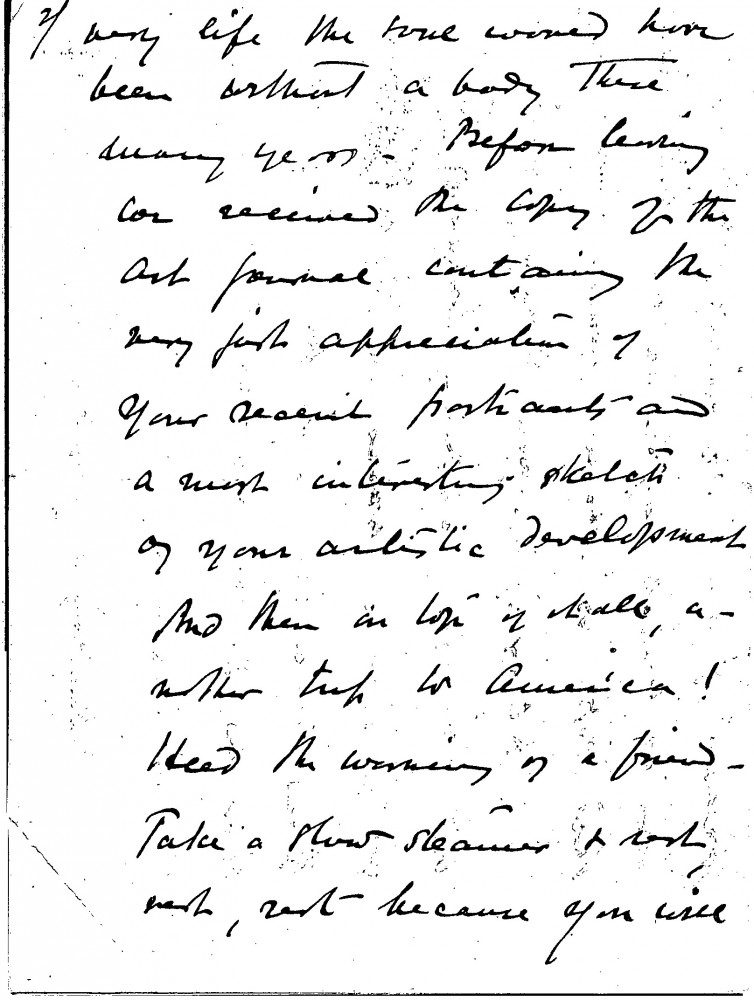 2/ very life the soul would have
been without a body these
many years - Before leaving
we received the copy of the
Art Journal containing the
very just appreciation of
your recent portraits and
a most interesting sketch
of your artistic development
And then on top of it all, a-
nother trip to America!
Heed the warning of a friend -
Take a slow steamer & rest,
rest, rest because you will